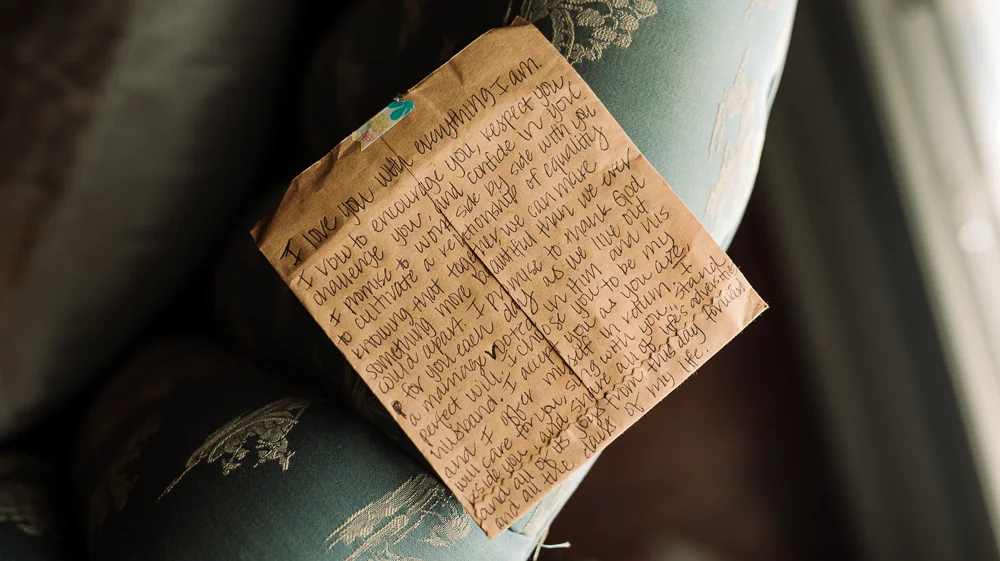 I love you with everything I am.
I vow to encourage you, respect you
challenge you, and confide in you.
I promise to work side by side with you
to cultivate a relationship of equality
knowing that together we can make
something more beautiful than we ever
could apart. I promise to thank God
for you each day as we live out
a marriage rooted in Him and His
perfect will. I choose you to be my
husband. I accept you as you are
and I offer myself in return. I
will care for you, stand
beside you and share life's adversities
and all of its joys from this day forward
and all the days of my life.